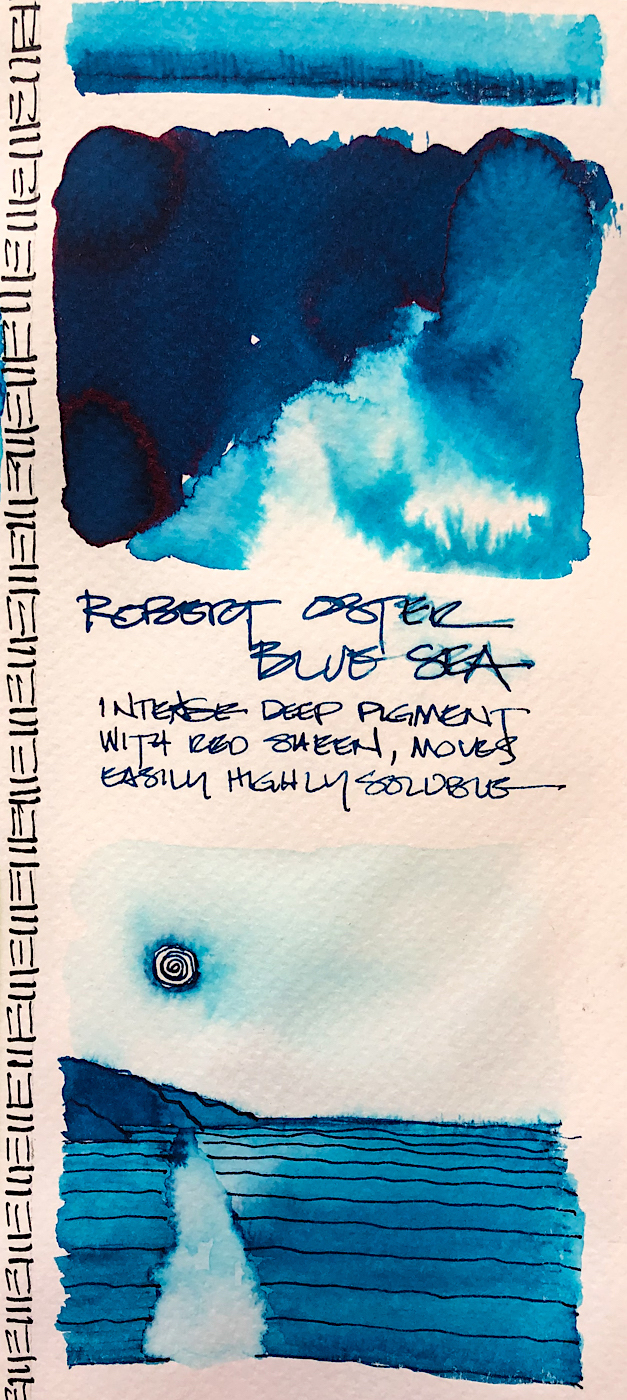 ROBERT OSTER
BLUE SEA
INTENSE DEEP PIGMENT
WITH RED SHEEN, MOVES
EASILY HIGHLY SOLUBLE